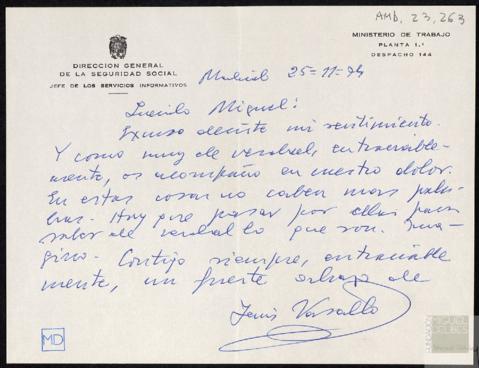 AMD, 23, 263
DIRECCION GENERAL
DE LA SEGURIDAD SOCIAL
JEFE DE LOS SERVICIOS INFORMATIVOS
MINISTERIO DE TRABAJO
PLANTA 1.ª
DESPACHO 144
Madrid 25-11-74
Querido Miguel:
Excuso decirte mi sentimiento.
Y como muy de verdad, entrañable-
mente, os acompaño en vuestro dolor.
En estas cosas no caben más pala-
bras. Hay que pasar por ellas para
saber de verdad lo que son. Ima-
gino. Contigo siempre, entrañable
mente, un fuerte abrazo de
Jesús Vasallo
MD
FUNDACIÓN
MIGUEL
DELIBES